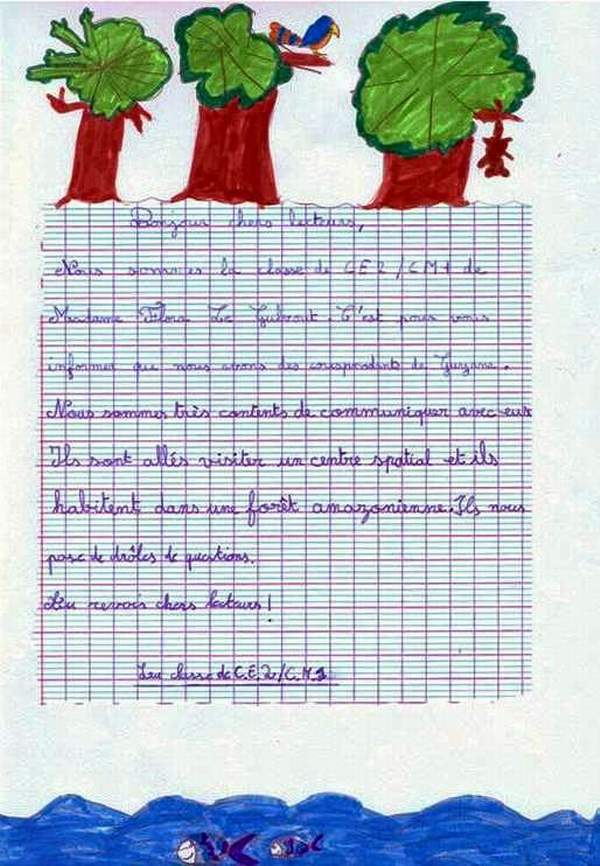 Bonjour chers lecteurs,
Nous sommes la classe de CE2/CM1 de
Madame Flora Le . C'est pour vous
informer que nous avons des correspondants de Guyane.
Nous sommes très contents de communiquer avec eux
Ils sont allés visiter un centre spatial et ils
habitent dans une forêt amazonienne. Ils nous
pose de drôles de questions.
Au revoir chers lecteurs!
La classe de C.E.2/C.M.1